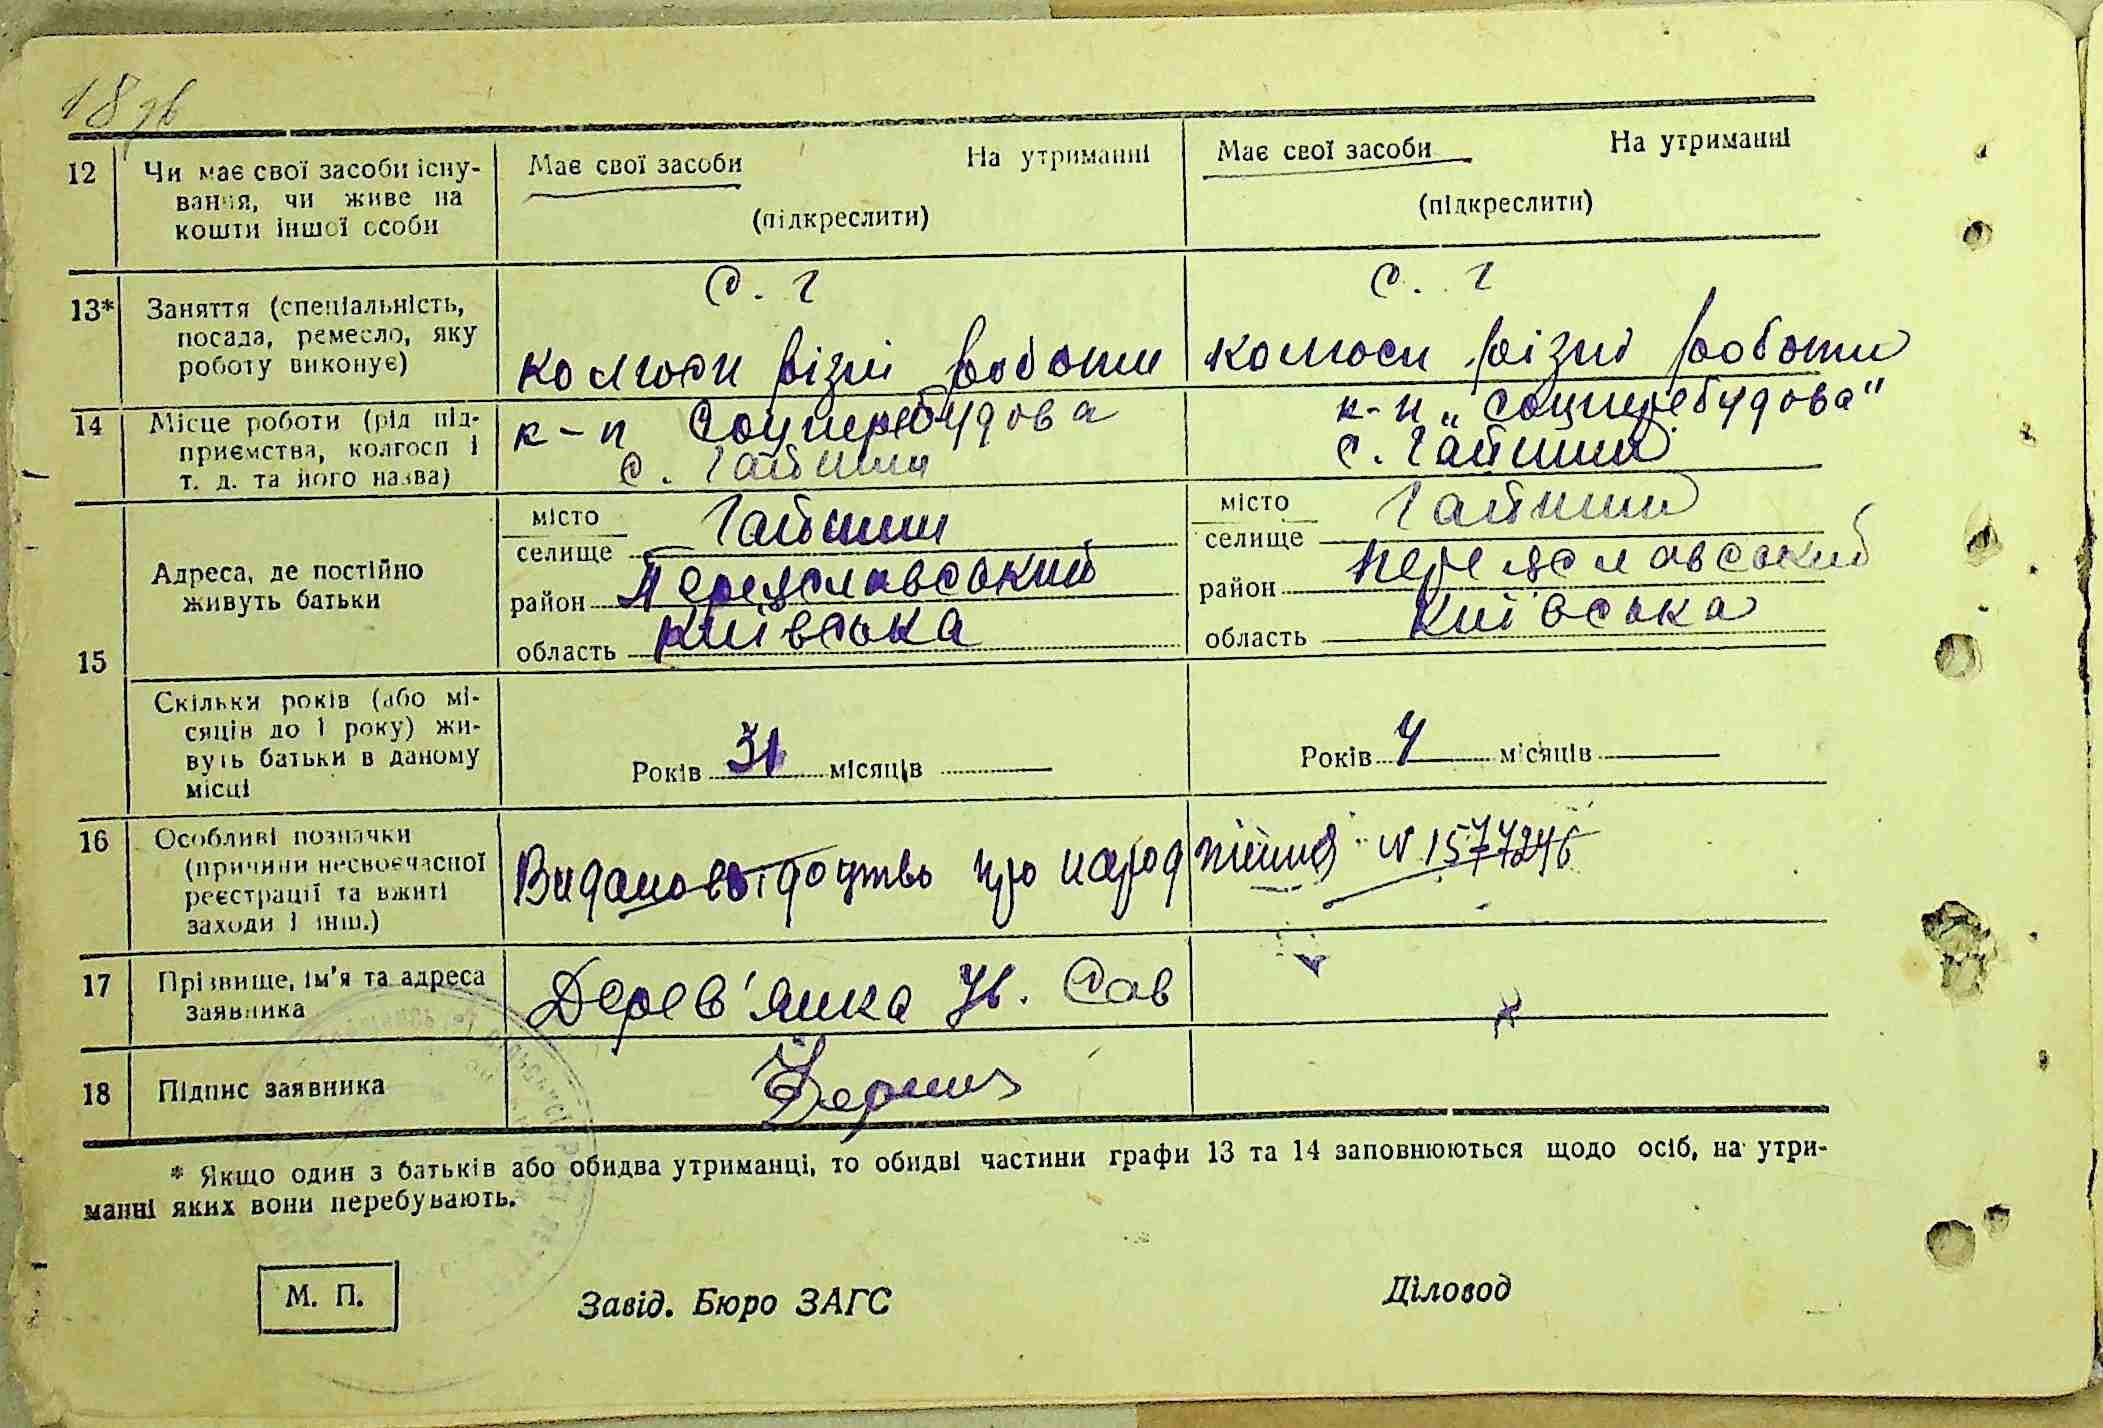 18 зв
12 Чи має свої засоби існу- Має свої засоби На утриманні Має свої засоби На утриманні
вання, чи живе на (підкреслити) (підкреслити)
кошти іншої особи
с. г с. г
13* Заняття (спеціальність,
посада, ремесло, яку
роботу виконує) колгосп різні роботи колгосп різні роботи
14 Місце роботи (рід під- к-п Соцперебудова к-п „Соцперебудова"
приємства, колгосп і с. Гайшин с. Гайшин
т. д. та його назва)
місто Гайшин місто Гайшин
селище селище
15 Адреса, де постійно район Переяславський район Переяславський
живуть батьки область Київська область Київська
Скільки років (або мі-
сяців до 1 року) жи-
вуть батьки в даному Років 31 місяців Років 4 місяців
місці
16 Особливі позначки
(причини несвоєчасної Видано свідоцтво про народження N 1577246
реєстрації та вжиті
заходи і інш.)
17 Прізвище, ім'я та адреса Дерев'янка Ів. Сав
заявника
18 Підпис заявника
* Якщо один з батьків або обидва утриманці, то обидві частини графи 13 та 14 заповнюються щодо осіб, на утри-
манні яких вони перебувають.
М. П. Завід. Бюро ЗАГС Діловод